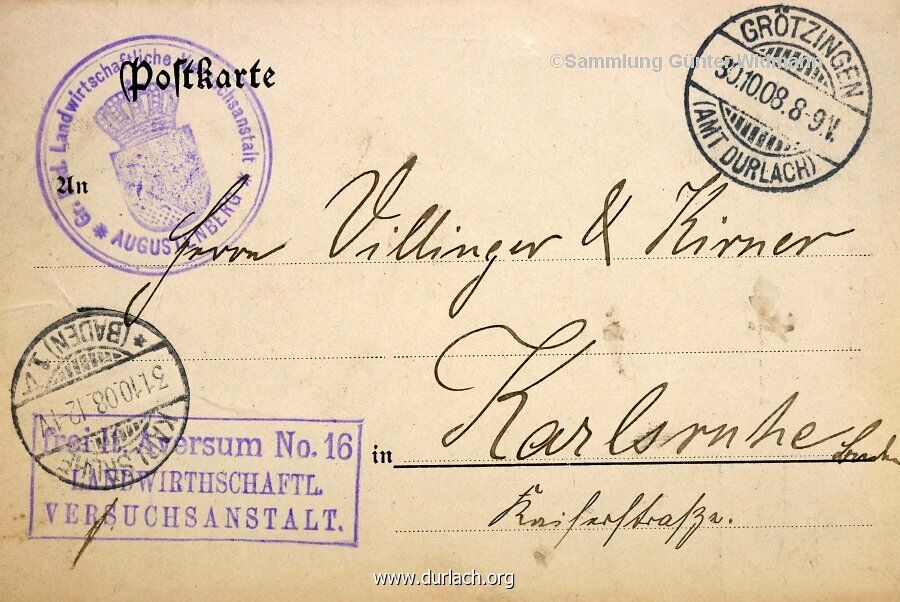 ©Sammlung Günter Widmann
Postkarte
Gr. Bad. Landwirtschaftliche Versuchsanstalt
* AUGUSTENBERG *
GRÖTZINGEN
30.10.08.8-9V.
(AMT DURLACH)
An
Herrn Villinger & Kirner
KARLSRUHE
31.10.08.12-1V.
* (BADEN) 1.V.
frei lt. Aversum No. 16
LANDWIRTHSCHAFTL.
VERSUCHSANSTALT.
in Karlsruhe
Kaiserstraße.
www.durlach.org